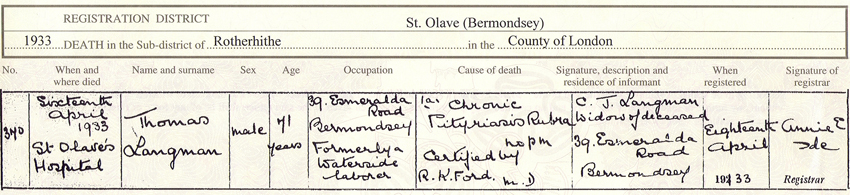 REGISTRATION DISTRICT St. Olave (Bermondsey)
1933 DEATH in the Sub-district of Rotherhithe in the County of London
No. When and where died Name and surname Sex Age Occupation Cause of death Signature, description and residence of informant When registered Signature of registrar
340
Sixteenth
April
1933
St Olave's
Hospital
Thomas
Langman
male
71
years
39. Esmeralda
Road
Bermondsey
Formerly a
Waterside
laborer
1a. Chronic
Pityriasis Rubra
no p m
Certified by
R.K. Ford. M.D
C. J. Langman
Widow of deceased
39. Esmeralda
Road
Bermondsey
Eighteenth
April
1933
Annie E
Registrar